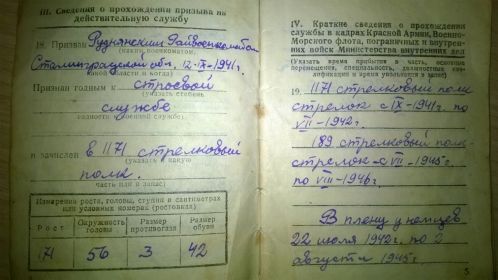 III. Сведения о прохождении призыва на
действительную службу
18. Призван Руднянским Райвоенкоматом
(каким военкоматом,
Сталинградской обл. 12-IX-1941г.
какой области и когда)
Признан годным к строевой
(указать степень
службе
годности к военной службе)
и зачислен в 1171 стрелковый
(указать в какую
полк.
часть или в запас)
Измерения роста, головы, ступни в сантиметрах
или условных номерах (ростовках)
Рост
Окружность
головы
Размер
противогаза
Размер
обуви
171 56 3 42
IV. Краткие сведения о прохождении
службы в кадрах Красной Армии, Военно-
Морского флота, пограничных и внутрен-
них войск Министерства внутренних дел
(Указать время прибытия в часть, основные
перемещения, специальность, должностная ква-
лификация и время увольнения в запас)
19. 1171 стрелковый полк
стрелок с IX-1941г. по
VII-1942г.
189 стрелковый полк
стрелок с VII-1945г.
по VIII-1946г.
В плену у немцев
22 июля 1942г. по 2
августа 1945г.
5